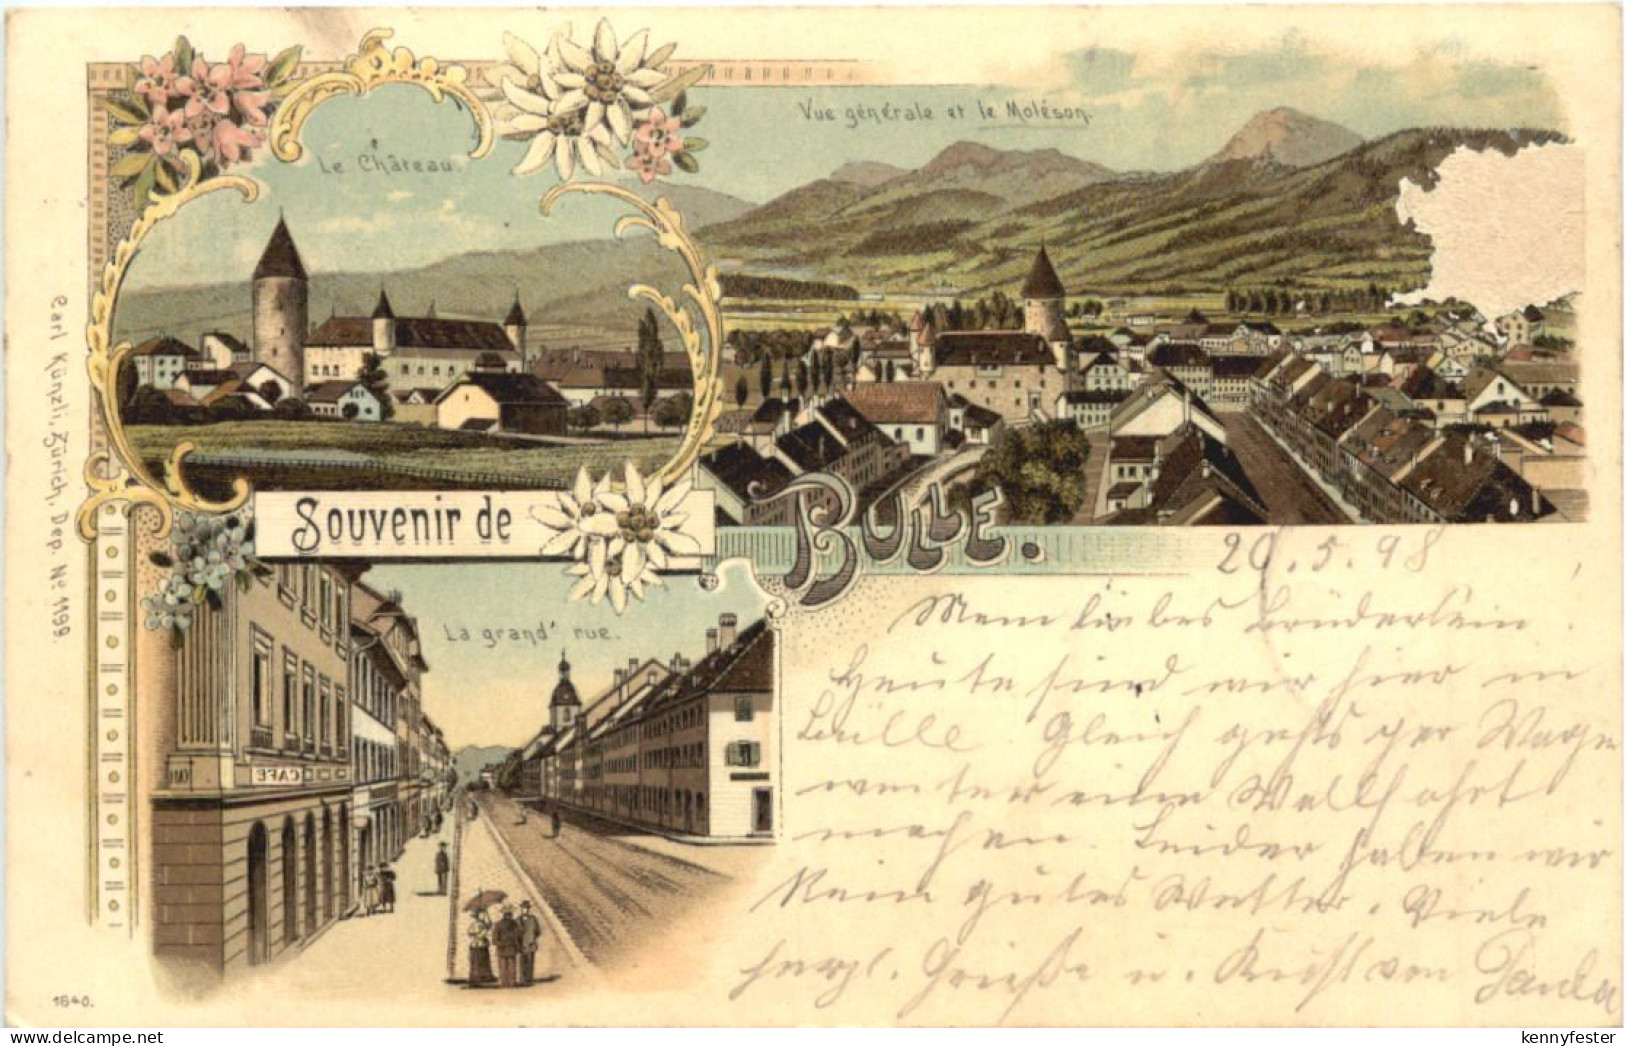 Le Château.
Vue générale et le Moléson.
Souvenir de
BULLE.
La grand' rue.
CAFÉ
Carl Künzli, Zürich, Dep. No 1199.
1640.
20.5.98
Mein liebes Brüderlein!
Heute sind wir hier in
Bulle. Gleich gehts per Wagen
weiter eine Wallfahrt
machen. Leider haben wir
kein gutes Wetter. Viele
herzl. Grüße u. Kuß von Paula
kennyfester